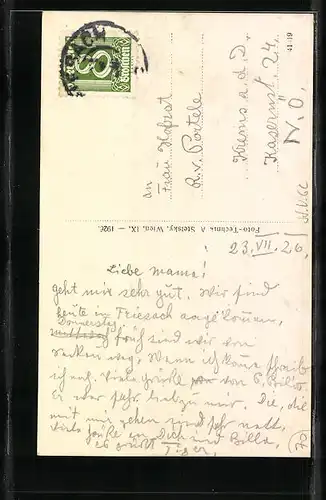 FRIESACH
8 Groschen
an
Frau Hofrat
R. v. Portele
Krems a. d. D.
Kasernstr. 24.
N. Ö.
41119
Foto-Technik A. Stefsky, Wien, IX. — 1926.
23. VII. 26.
Liebe Mama!
geht mir sehr gut. Wir sind
heute in Friesach angekommen,
Donnerstag
früh sind wir von
weg. Wenn ich kann schreibe
ich auf. Viele Grüße von
Er war sehr lieb zu mir. Die, die
mit mir gehen sind sehr nett.
Viele Grüße an Dich und Billa,
es grüßt
70